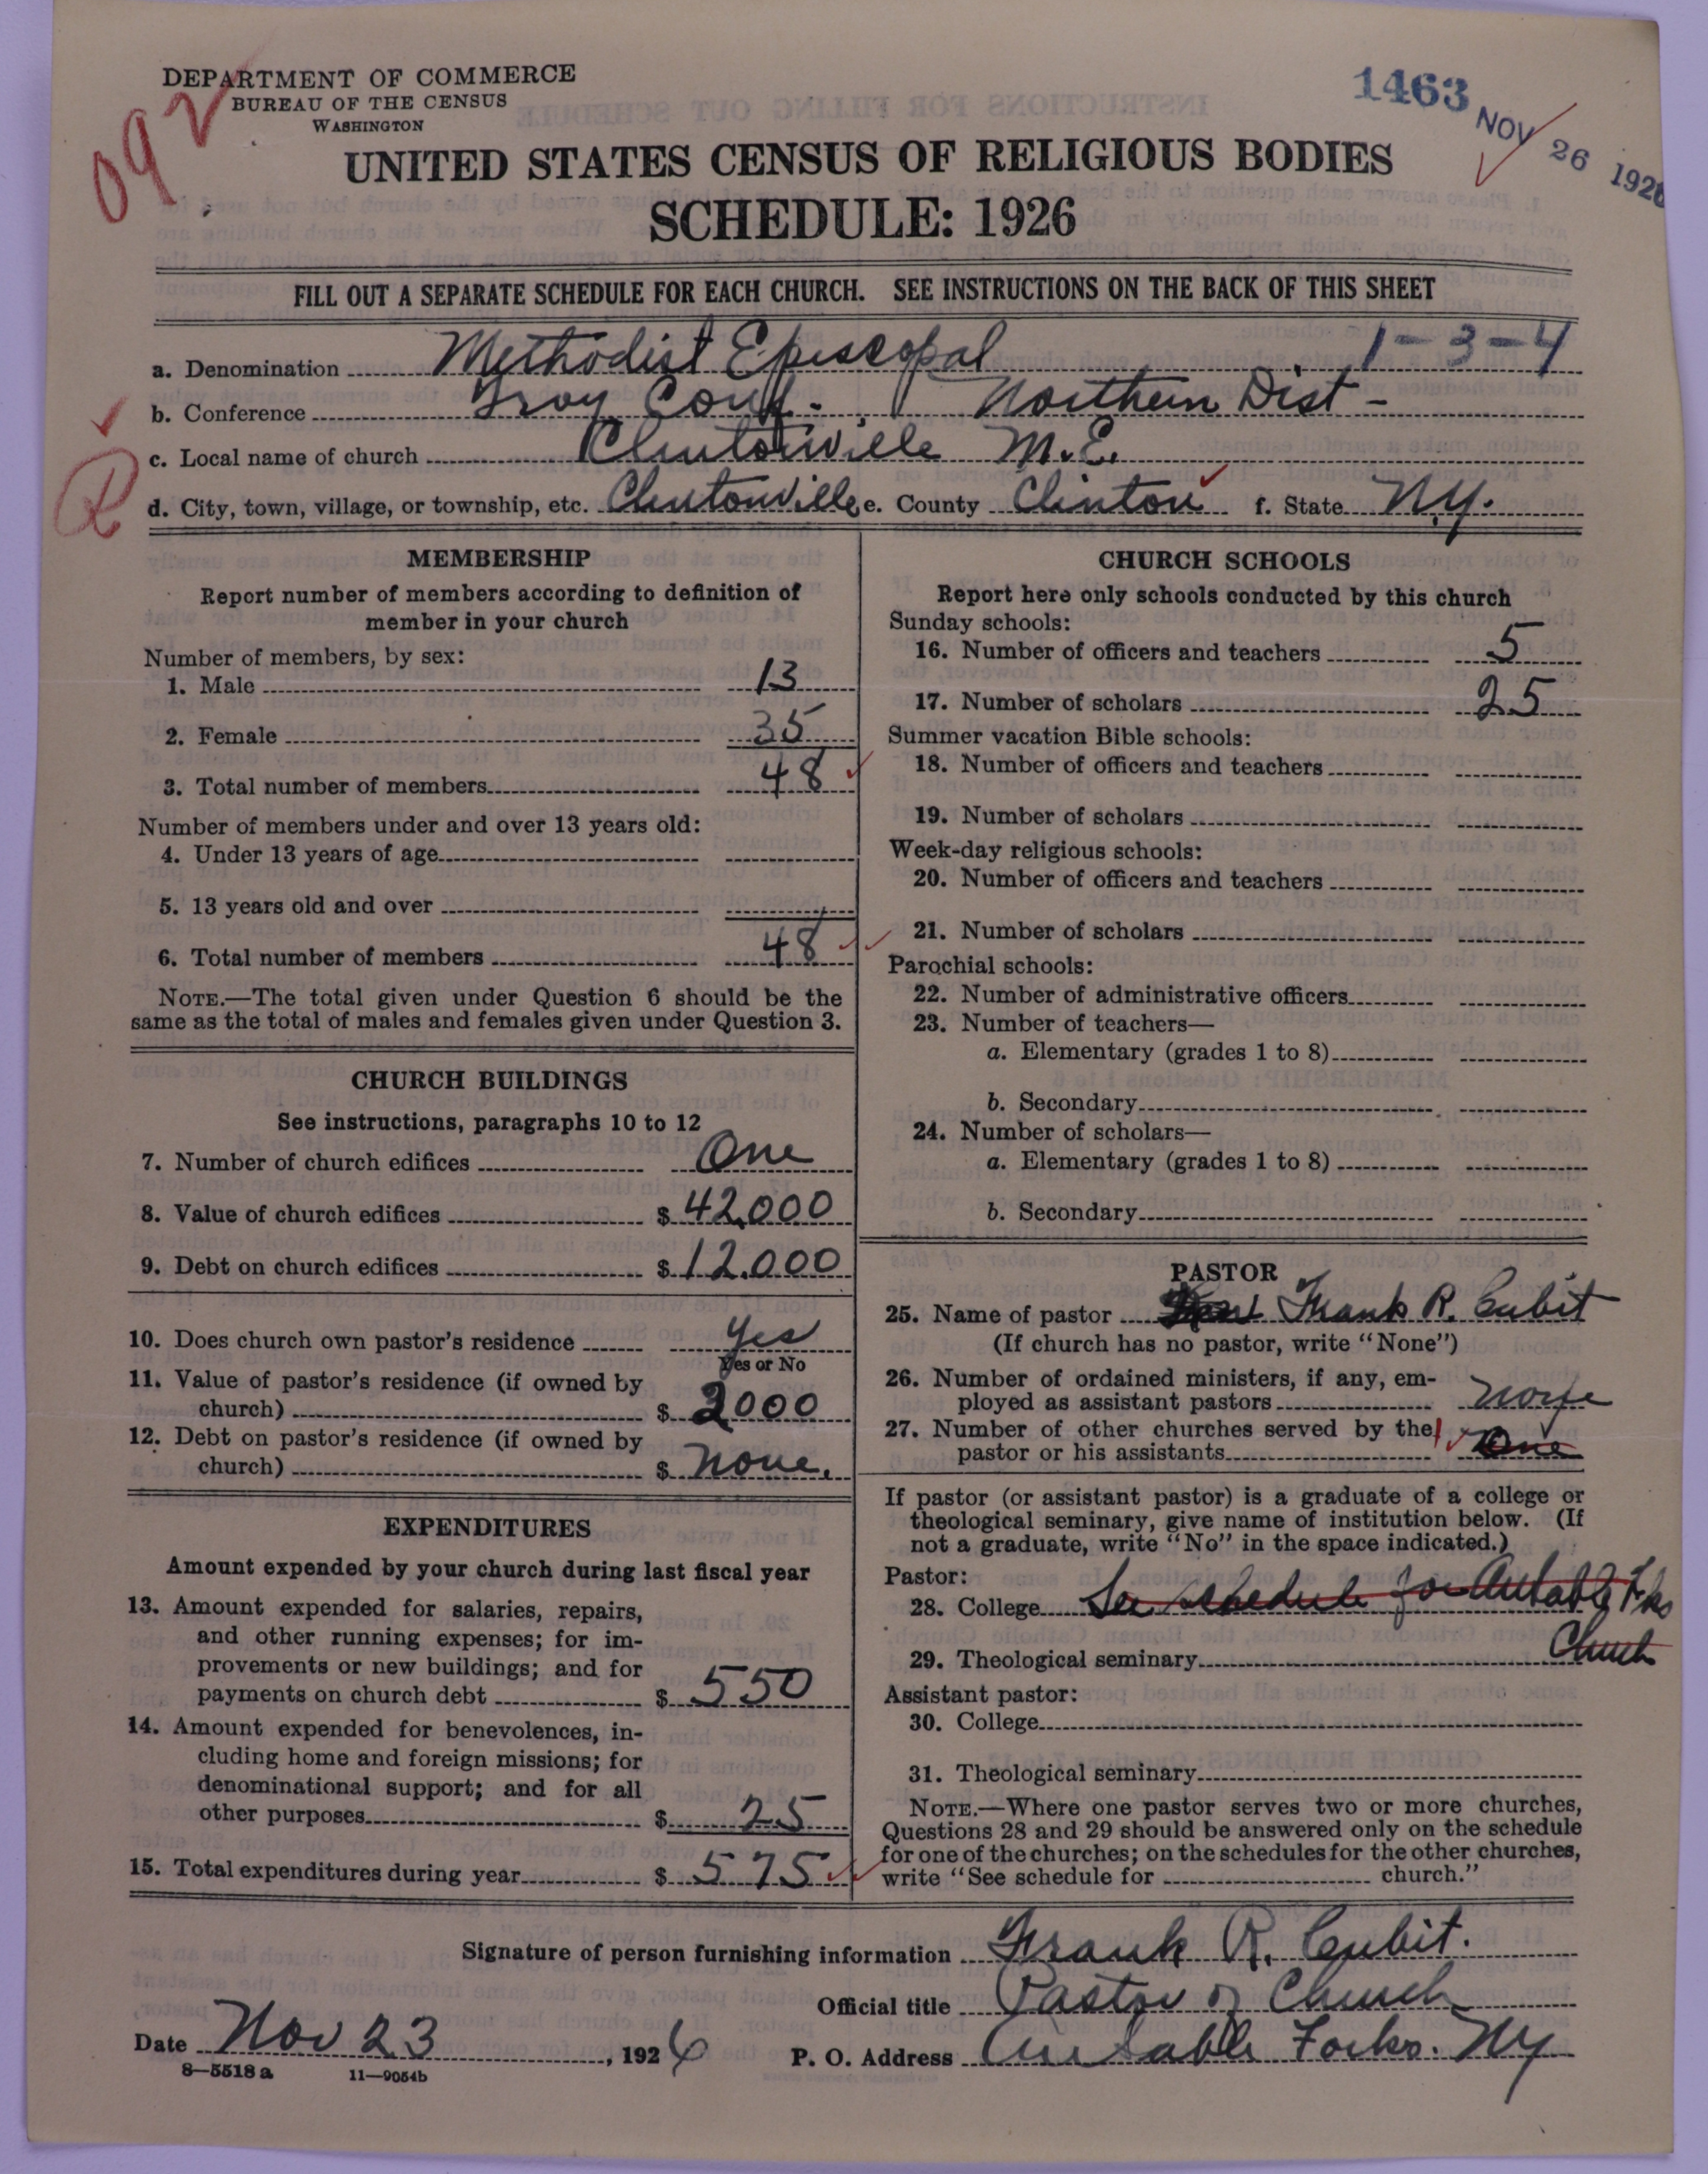 DEPARTMENT OF COMMERCE
BUREAU OF THE CENSUS
WASHINGTON
092
1463
NOV 26 1926
UNITED STATES CENSUS OF RELIGIOUS BODIES
SCHEDULE: 1926
FILL OUT A SEPARATE SCHEDULE FOR EACH CHURCH. SEE INSTRUCTIONS ON THE BACK OF THIS SHEET
a. Denomination Methodist Episcopal 1-3-4
b. Conference Troy Conf. Northern Dist -
c. Local name of church Clintonville M.E.
d. City, town, village, or township, etc. Clintonville e. County Clinton f. State N.Y.
R
MEMBERSHIP
Report number of members according to definition of
member in your church
Number of members, by sex:
1. Male 13
2. Female 35
3. Total number of members 48
Number of members under and over 13 years old:
4. Under 13 years of age
5. 13 years old and over
6. Total number of members 48
NOTE.—The total given under Question 6 should be the
same as the total of males and females given under Question 3.
CHURCH BUILDINGS
See instructions, paragraphs 10 to 12
7. Number of church edifices One
8. Value of church edifices $ 42,000
9. Debt on church edifices $ 12.000
10. Does church own pastor's residence Yes
Yes or No
11. Value of pastor's residence (if owned by
church) $ 2000
12. Debt on pastor's residence (if owned by
church) $ None.
EXPENDITURES
Amount expended by your church during last fiscal year
13. Amount expended for salaries, repairs,
and other running expenses; for im-
provements or new buildings; and for
payments on church debt $ 550
14. Amount expended for benevolences, in-
cluding home and foreign missions; for
denominational support; and for all
other purposes $ 25
15. Total expenditures during year $ 575
CHURCH SCHOOLS
Report here only schools conducted by this church
Sunday schools:
16. Number of officers and teachers 5
17. Number of scholars 25
Summer vacation Bible schools:
18. Number of officers and teachers
19. Number of scholars
Week-day religious schools:
20. Number of officers and teachers
21. Number of scholars
Parochial schools:
22. Number of administrative officers
23. Number of teachers—
a. Elementary (grades 1 to 8)
b. Secondary
24. Number of scholars—
a. Elementary (grades 1 to 8)
b. Secondary
PASTOR
25. Name of pastor Frank R. Cubit
(If church has no pastor, write "None")
26. Number of ordained ministers, if any, em-
ployed as assistant pastors None
27. Number of other churches served by the
pastor or his assistants 1 One
If pastor (or assistant pastor) is a graduate of a college or
theological seminary, give name of institution below. (If
not a graduate, write "No" in the space indicated.)
Pastor:
28. College See schedule for AuSable Fks
Church
29. Theological seminary
Assistant pastor:
30. College
31. Theological seminary
NOTE.—Where one pastor serves two or more churches,
Questions 28 and 29 should be answered only on the schedule
for one of the churches; on the schedules for the other churches,
write "See schedule for church."
Signature of person furnishing information Frank R. Cubit.
Official title Pastor of Church
Date Nov 23, 1926 P. O. Address Au Sable Forks. NY
8—5518 a 11—9054b